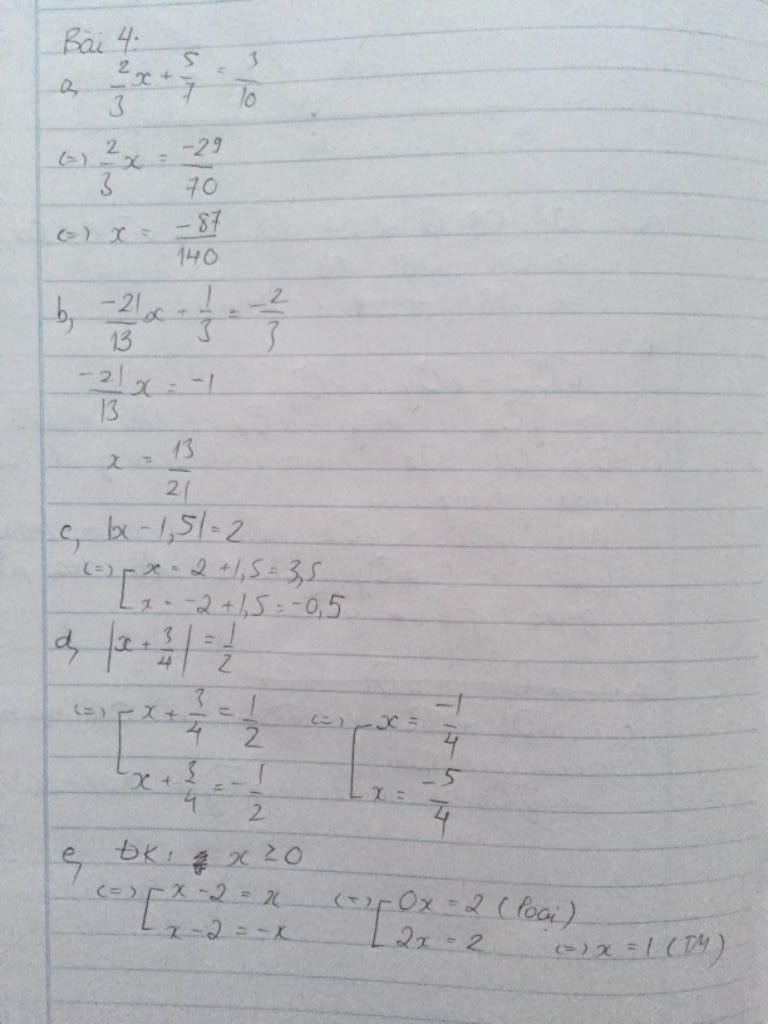 Bài 4:
a, 2/3 x + 5/7 = 3/10
(=) 2/3 x = -29/70
(=) x = -87/140
b, -21/13 x + 1/3 = -2/3
-21/13 x = -1
x = 13/21
c, |x - 1,5| = 2
(=) [ x = 2 + 1,5 = 3,5
x = -2 + 1,5 = -0,5
d, |x + 3/4| = 1/2
(=) [ x + 3/4 = 1/2 (=) [ x = -1/4
x + 3/4 = -1/2 x = -5/4
e, ĐK: x ≥ 0
(=) [ x - 2 = x (=) [ 0x = 2 (Loại)
x - 2 = -x 2x = 2 (=) x = 1 (TM)